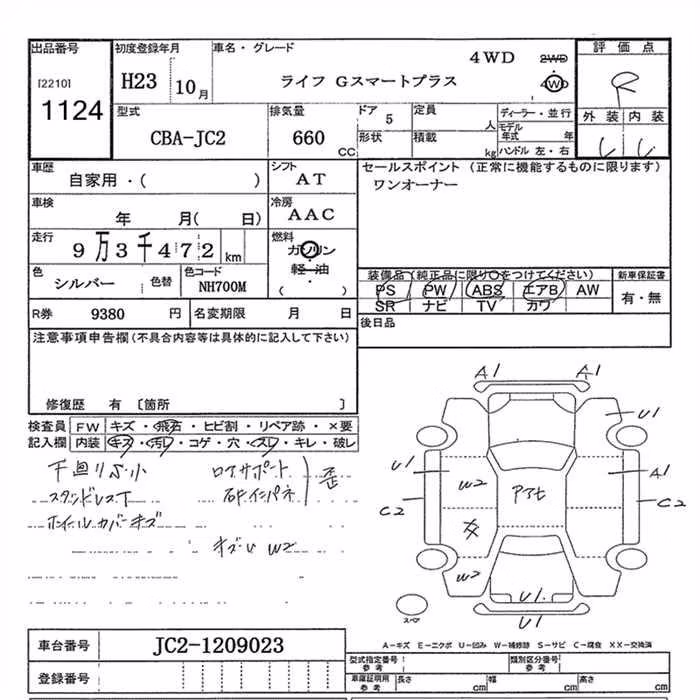 出品番号 初度登録年月 車名・グレード 4WD 2WD 評価点
[2210] H23 10月 ライフ Gスマートプラス 4WD R
1124 外装 内装
型式 排気量 ドア 5 定員 人 ディーラー・並行
CBA-JC2 660 CC 形状 積載 kg モデル年式 年
ハンドル 左・右
車歴 シフト セールスポイント (正常に機能するものに限ります)
自家用・( ) AT ワンオーナー
車検 冷房
年 月( 日) AAC
走行 燃料
9万3千472 km ガソリン
軽・油
( )
色 色替 色コード 装備品(純正品に限り○をつけてください) 新車保証書
シルバー NH700M PS PW ABS エアB AW 有・無
R券 9380 円 名変期限 月 日 SR ナビ TV カワ
注意事項申告欄(不具合内容等は具体的に記入して下さい) 後日品
修復歴 有 〔箇所 〕
検査員 FW キズ・飛石・ヒビ割・リペア跡・×要
記入欄 内装 キズ・汚レ・コゲ・穴・スレ・キレ・破レ
ロアサポート
右Fインパネ 歪
ホイールカバーキズ
キズU W2
A1 A1
U1
U1 A1
W2
C2 C2
W2
U1
U1
スペア
A-キズ E-エクボ U-凹み W-補修跡 S-サビ C-腐食 XX-交換済
車台番号 JC2-1209023
型式指定番号 参考 類別区分番号 参考
登録番号 車庫証明用 参考 長さ cm 幅 cm 高さ cm